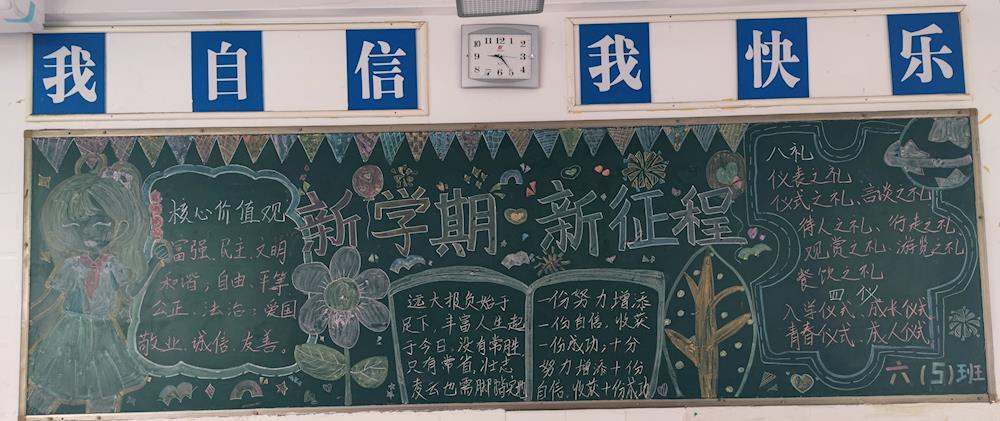 我自信
我快乐
新学期·新征程
核心价值观
富强、民主、文明
和谐；自由、平等
公正、法治：爱国
敬业、诚信、友善。
远大报负始于
足下，丰富人生起
于今日，没有常胜
只有常省，壮志
凌云也需脚踏实地
一份努力增添
一份自信，收获
一份成功，十分
努力增添十份
自信，收获十份成功
八礼
仪表之礼
仪式之礼、言谈之礼
待人之礼、行走之礼
观赏之礼、游览之礼
餐饮之礼
四仪
入学仪式、成长仪式
青春仪式、成人仪式
六(5)班